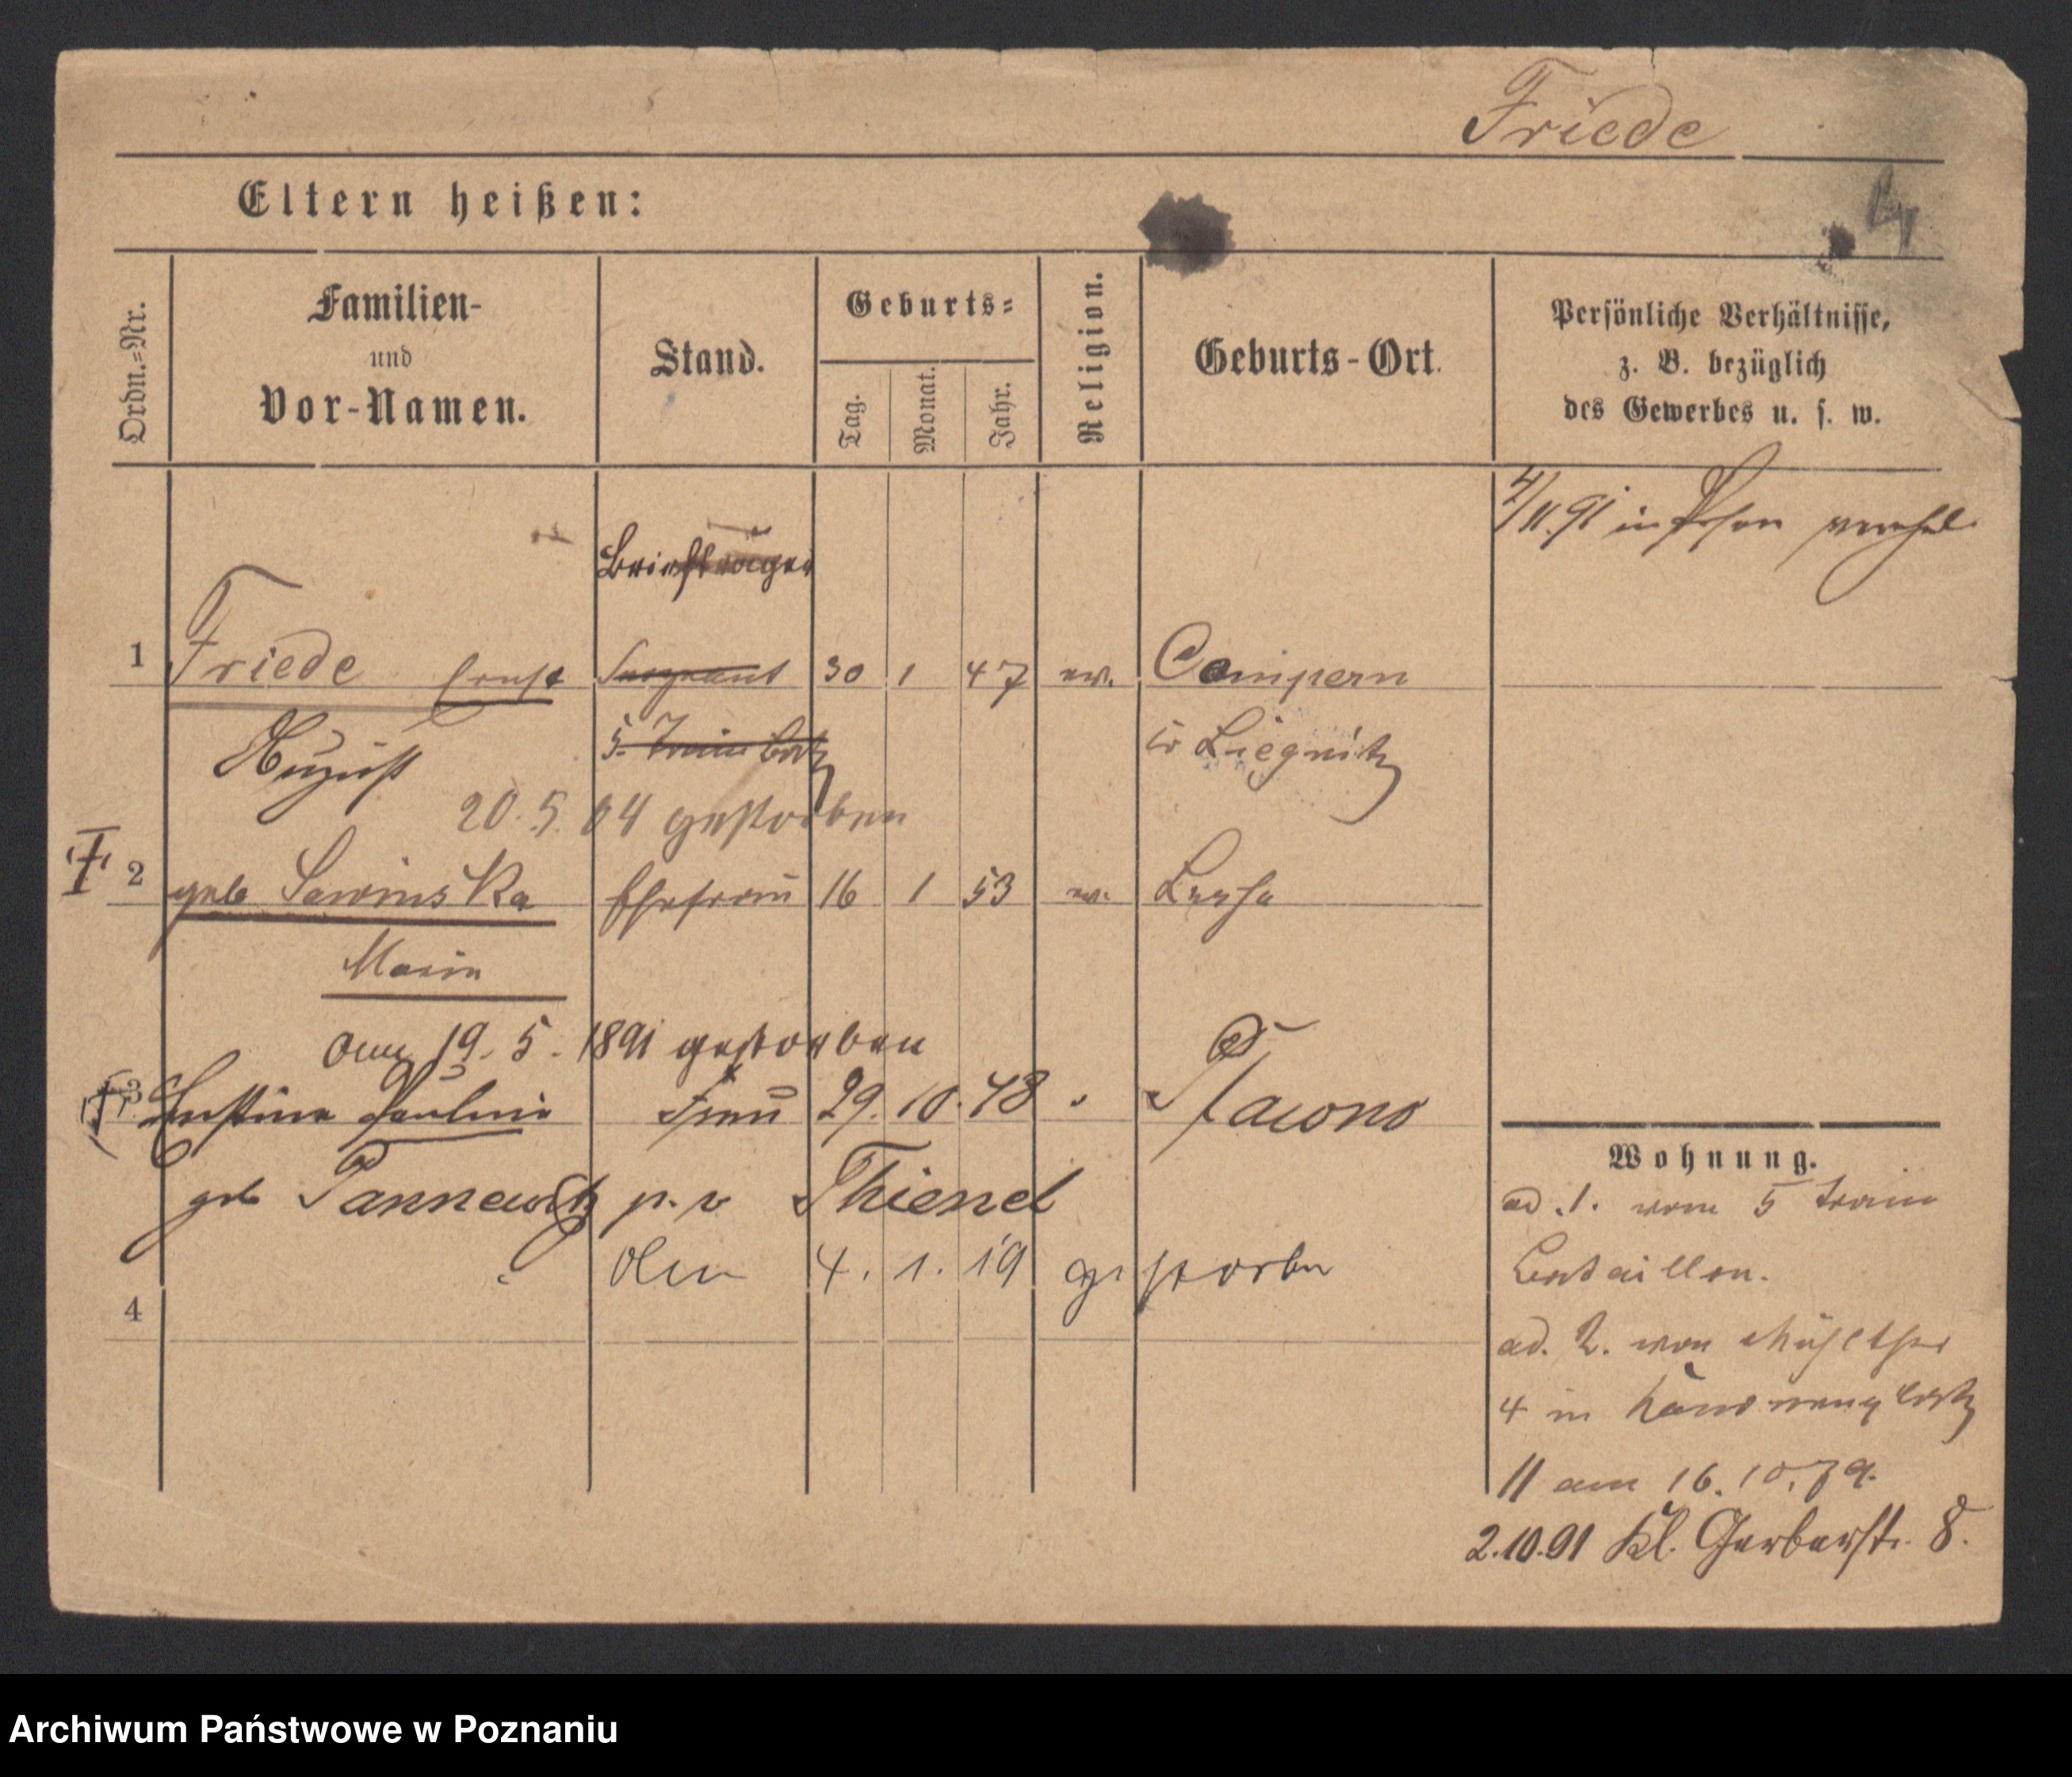 Friede
Eltern heißen:
Ordn.=Nr.
Familien-
und
Vor-Namen.
Stand.
Geburts=
Tag.
Monat.
Jahr.
Religion.
Geburts-Ort.
Persönliche Verhältnisse,
z. B. bezüglich
des Gewerbes u. s. w.
4/11.91 in Posen
Briefträger
1 Friede Ernst Sergeant 30 1 47 ev. Campern
August 5. Train Batl Liegnitz
20.5.04 gestorben
2 geb Sawinska Ehefrau 16 1 53 ev. Lissa
Marie
am 19. 5. 1891 gestorben
3 Ernstine Pauline Frau 29. 10. 48
geb Pannewitz Thienel
Am 4. 1. 19 gestorben
4
Wohnung.
ad. 1. vom 5 Train
Bataillon.
ad. 2. von
4 in
11 am 16. 10. 79.
2.10.91 Kl. Gerberstr. 8.
Archiwum Państwowe w Poznaniu